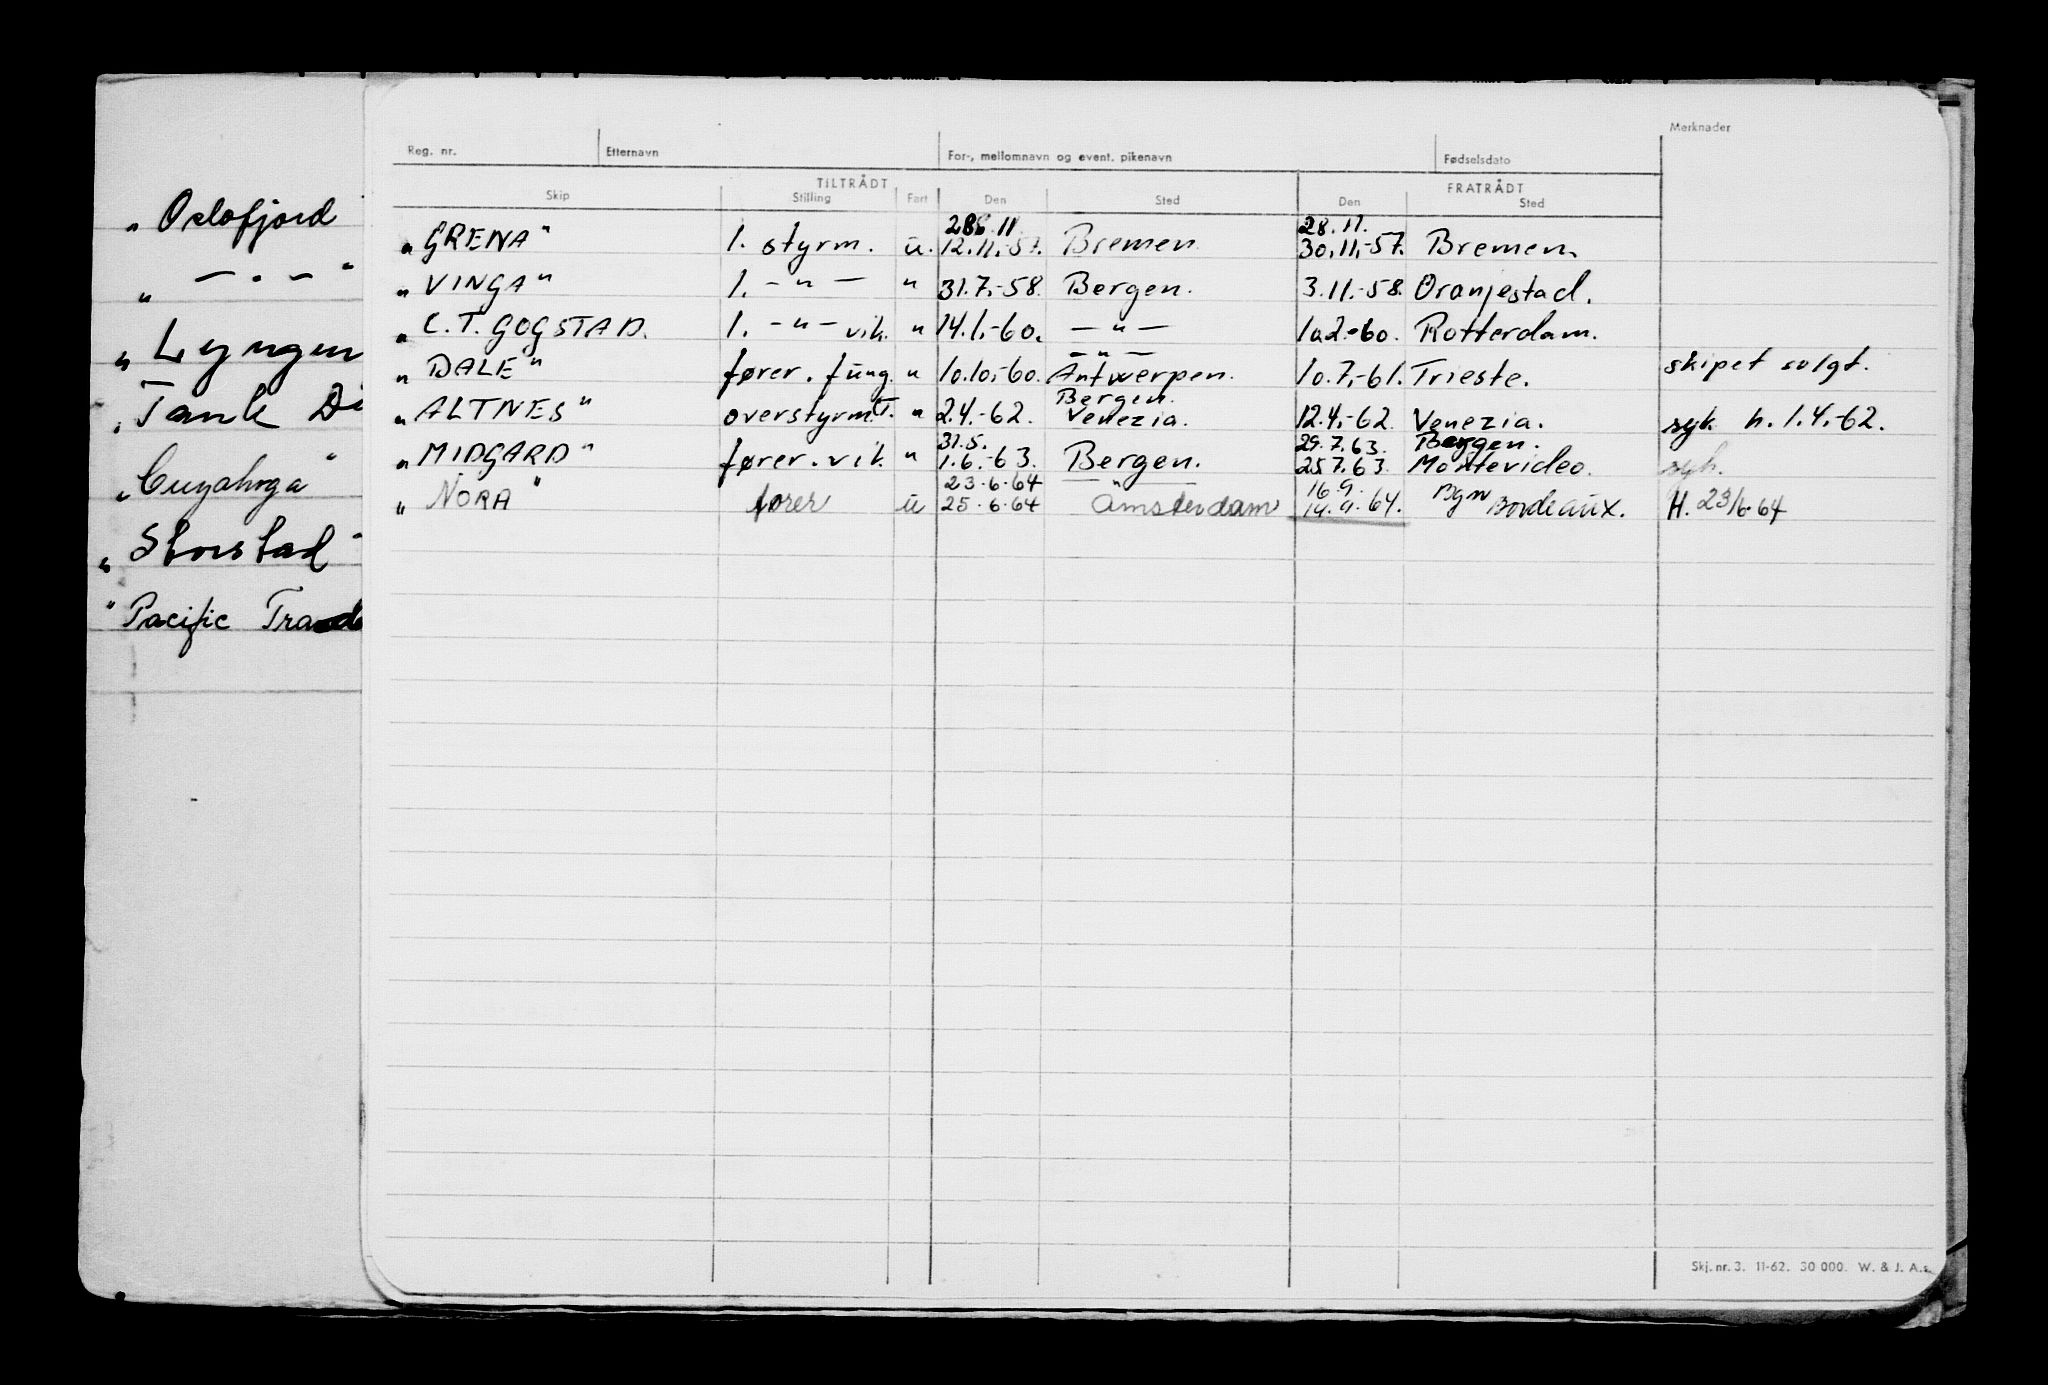 Merknader
Reg. nr. Etternavn For-, mellomnavn og event. pikenavn Fødselsdato
TILTRÅDT FRATRÅDT
Skip Stilling Fart Den Sted Den Sted
28.11. 28.11.
„GRENA" 1. styrm. u. 12.11.-57. Bremen. 30.11.-57. Bremen.
„VINGA" 1. -"- " 31.7.-58. Bergen. 3.11.-58. Oranjestad.
„C.T. GOGSTAD. 1. -"- vik. " 14.1.-60. -"- 10.2-60. Rotterdam.
-"-
„DALE" fører. fung. " 10.10.-60. Antwerpen. 10.7.-61. Trieste. skipet solgt.
Bergen.
„ALTNES" overstyrm. T. " 2.4.-62. Venezia. 12.4.-62. Venezia. syk h. 1.4.-62.
31.5. 29.7.63. Bergen.
„MIDGARD" fører. vik " 1.6.-63. Bergen. 25.7.63. Montevideo. syk.
23.6.64 16.9. Bgn
„NORA" fører u 25.6.64 Amsterdam 14.9.64. Bordeaux. H. 23/6-64
„Oslofjord
„ -"- "
„Lyngen
„Tank Di
„Cuyahoga"
„Storstad"
"Pacific Trad
Skj. nr. 3. 11-62. 30 000. W. & J. A.s